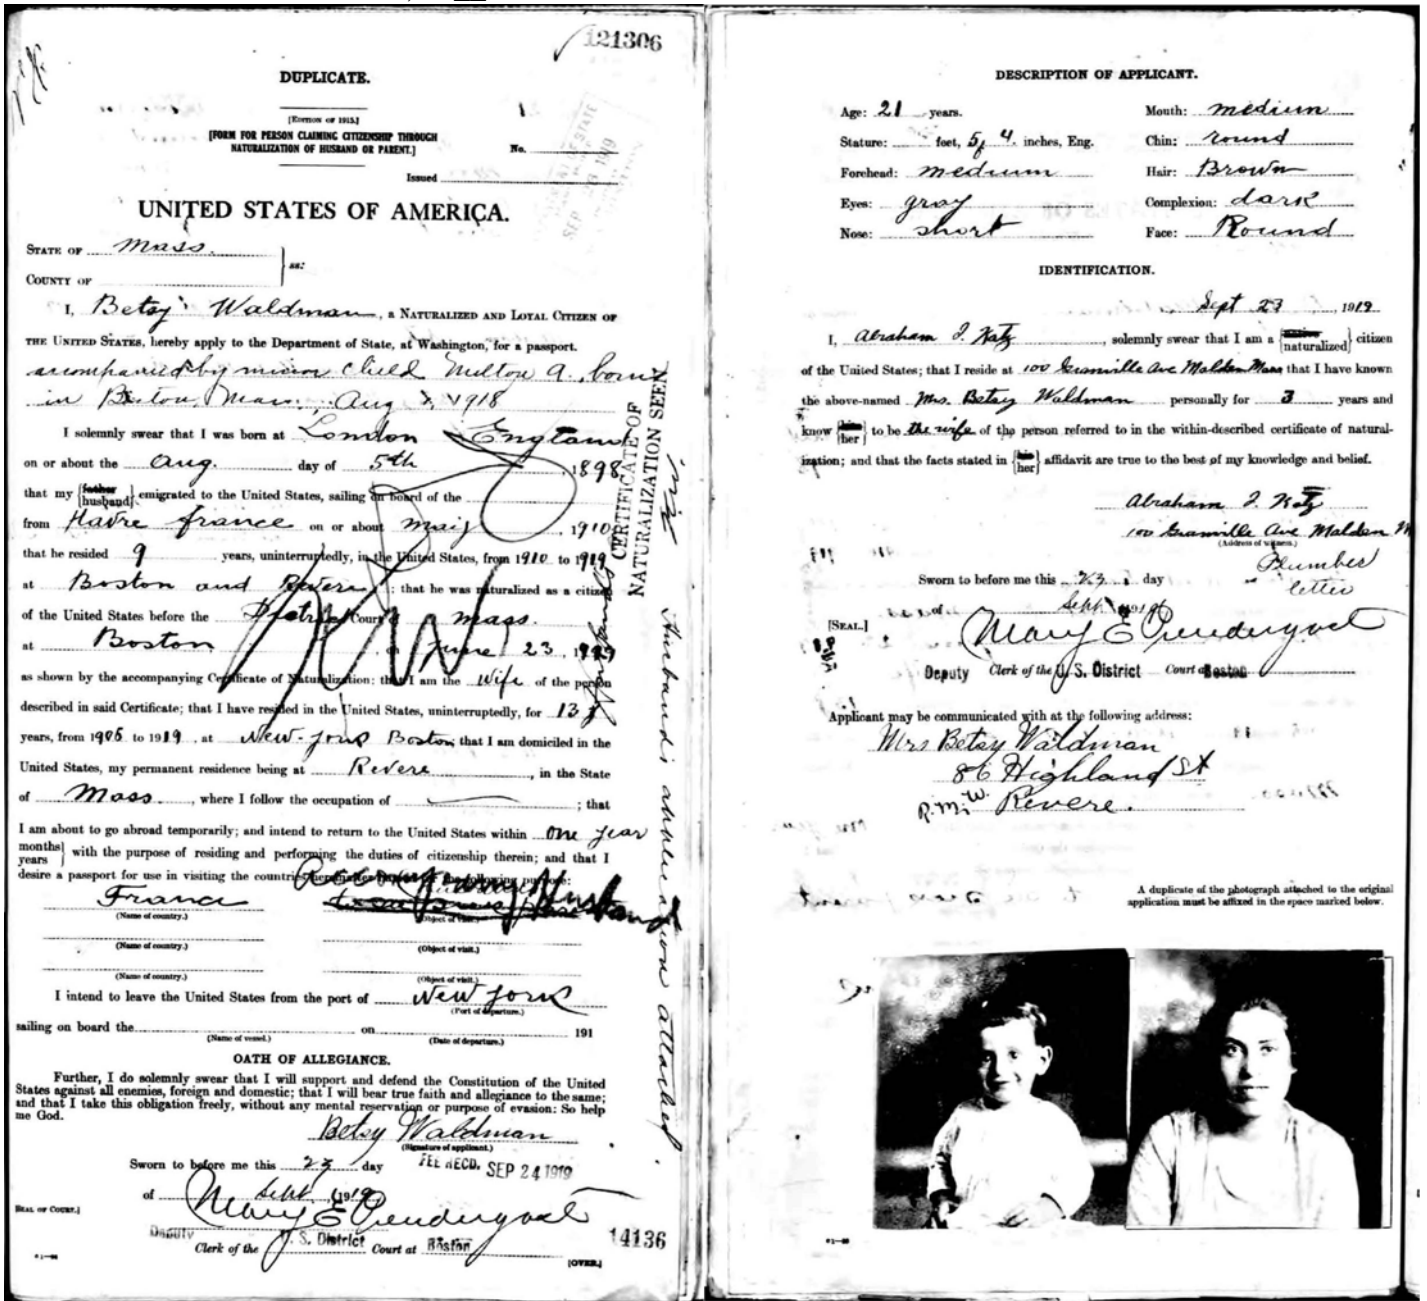 121306
DUPLICATE.
[EDITION OF 1915.]
[FORM FOR PERSON CLAIMING CITIZENSHIP THROUGH
NATURALIZATION OF HUSBAND OR PARENT.]
No.
Issued
UNITED STATES OF AMERICA.
STATE OF Mass.
COUNTY OF
ss:
I, Betsy Waldman, a NATURALIZED AND LOYAL CITIZEN OF
THE UNITED STATES, hereby apply to the Department of State, at Washington, for a passport.
accompanied by minor child Milton A., born
in Boston, Mass., Aug 1918
I solemnly swear that I was born at London England
on or about the Aug. day of 5th, 1898,
that my {father husband} emigrated to the United States, sailing on board of the
from Havre france on or about maig, 1910
that he resided 9 years, uninterruptedly, in the United States, from 1910 to 1919
at Boston and Revere; that he was naturalized as a citizen
of the United States before the District Court of mass.
at Boston on June 23, 1919
as shown by the accompanying Certificate of Naturalization; that I am the Wife of the person
described in said Certificate; that I have resided in the United States, uninterruptedly, for 13
years, from 1906 to 1919, at New-York Boston; that I am domiciled in the
United States, my permanent residence being at Revere, in the State
of Mass., where I follow the occupation of ; that
I am about to go abroad temporarily; and intend to return to the United States within one year
{months years} with the purpose of residing and performing the duties of citizenship therein; and that I
desire a passport for use in visiting the countries hereinafter named for the following purpose:
Accompany Husband
France
(Name of country.) (Object of visit.)
(Name of country.) (Object of visit.)
(Name of country.) (Object of visit.)
I intend to leave the United States from the port of New York
(Port of departure.)
sailing on board the on 191
(Name of vessel.) (Date of departure.)
OATH OF ALLEGIANCE.
Further, I do solemnly swear that I will support and defend the Constitution of the United
States against all enemies, foreign and domestic; that I will bear true faith and allegiance to the same;
and that I take this obligation freely, without any mental reservation or purpose of evasion: So help
me God.
Betsy Waldman
(Signature of applicant.)
FEE RECD. SEP 24 1919
Sworn to before me this 23 day
of Sept., 1919
Mary E Prendergast
[SEAL OF COURT.]
Deputy Clerk of the U. S. District Court at Boston
14136
[OVER.]
CERTIFICATE OF
NATURALIZATION SEEN
Husband's application attached
DESCRIPTION OF APPLICANT.
Age: 21 years. Mouth: medium
Stature: feet, 5, 4. inches, Eng. Chin: round
Forehead: medium Hair: Brown
Eyes: gray Complexion: dark
Nose: short Face: Round
IDENTIFICATION.
Sept 23, 1919
I, Abraham I. Katz, solemnly swear that I am a {native naturalized} citizen
of the United States; that I reside at 100 Granville Ave Malden Mass that I have known
the above-named Mrs. Betsy Waldman personally for 3 years and
know {him her} to be the wife of the person referred to in the within-described certificate of natural-
ization; and that the facts stated in {his her} affidavit are true to the best of my knowledge and belief.
Abraham I. Katz
100 Granville Ave Malden M
(Address of witness.)
Plumber
letter
Sworn to before me this 23 day
of Sept., 1919
[SEAL.]
Mary E Prendergast
Deputy Clerk of the U. S. District Court at Boston
Applicant may be communicated with at the following address:
Mrs Betsy Waldman
86 Highland St
R.M.W. Revere.
A duplicate of the photograph attached to the original
application must be affixed in the space marked below.